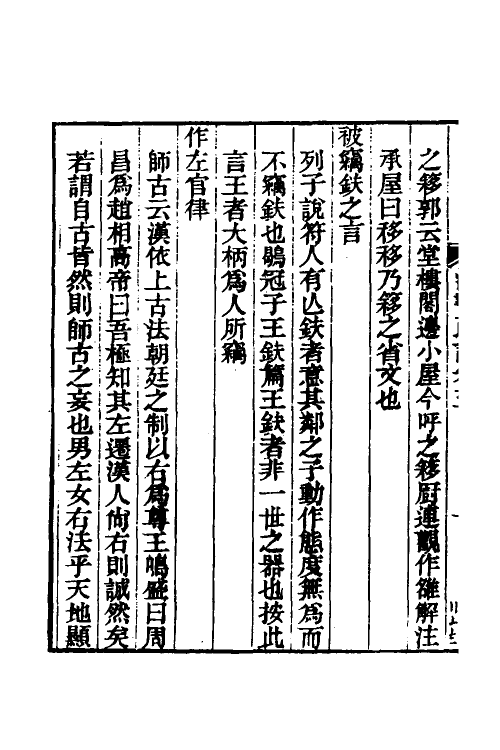 之簃郭云堂樓閣邊小屋今呼之簃厨連觀作雒解注
承屋曰移移乃簃之省文也
被竊鈇之言
列子說符人有亾鈇者意其鄰之子動作態度無爲而
不竊鈇也鶡冠子王鈇篇王鈇者非一世之器也按此
言王者大柄爲人所竊
作左官律
師古云漢依上古法朝廷之制以右爲尊王鳴盛曰周
昌爲趙相高帝曰吾極知其左遷漢人尚右則誠然矣
若謂自古皆然則師古之妄也男左女右法乎天地顯